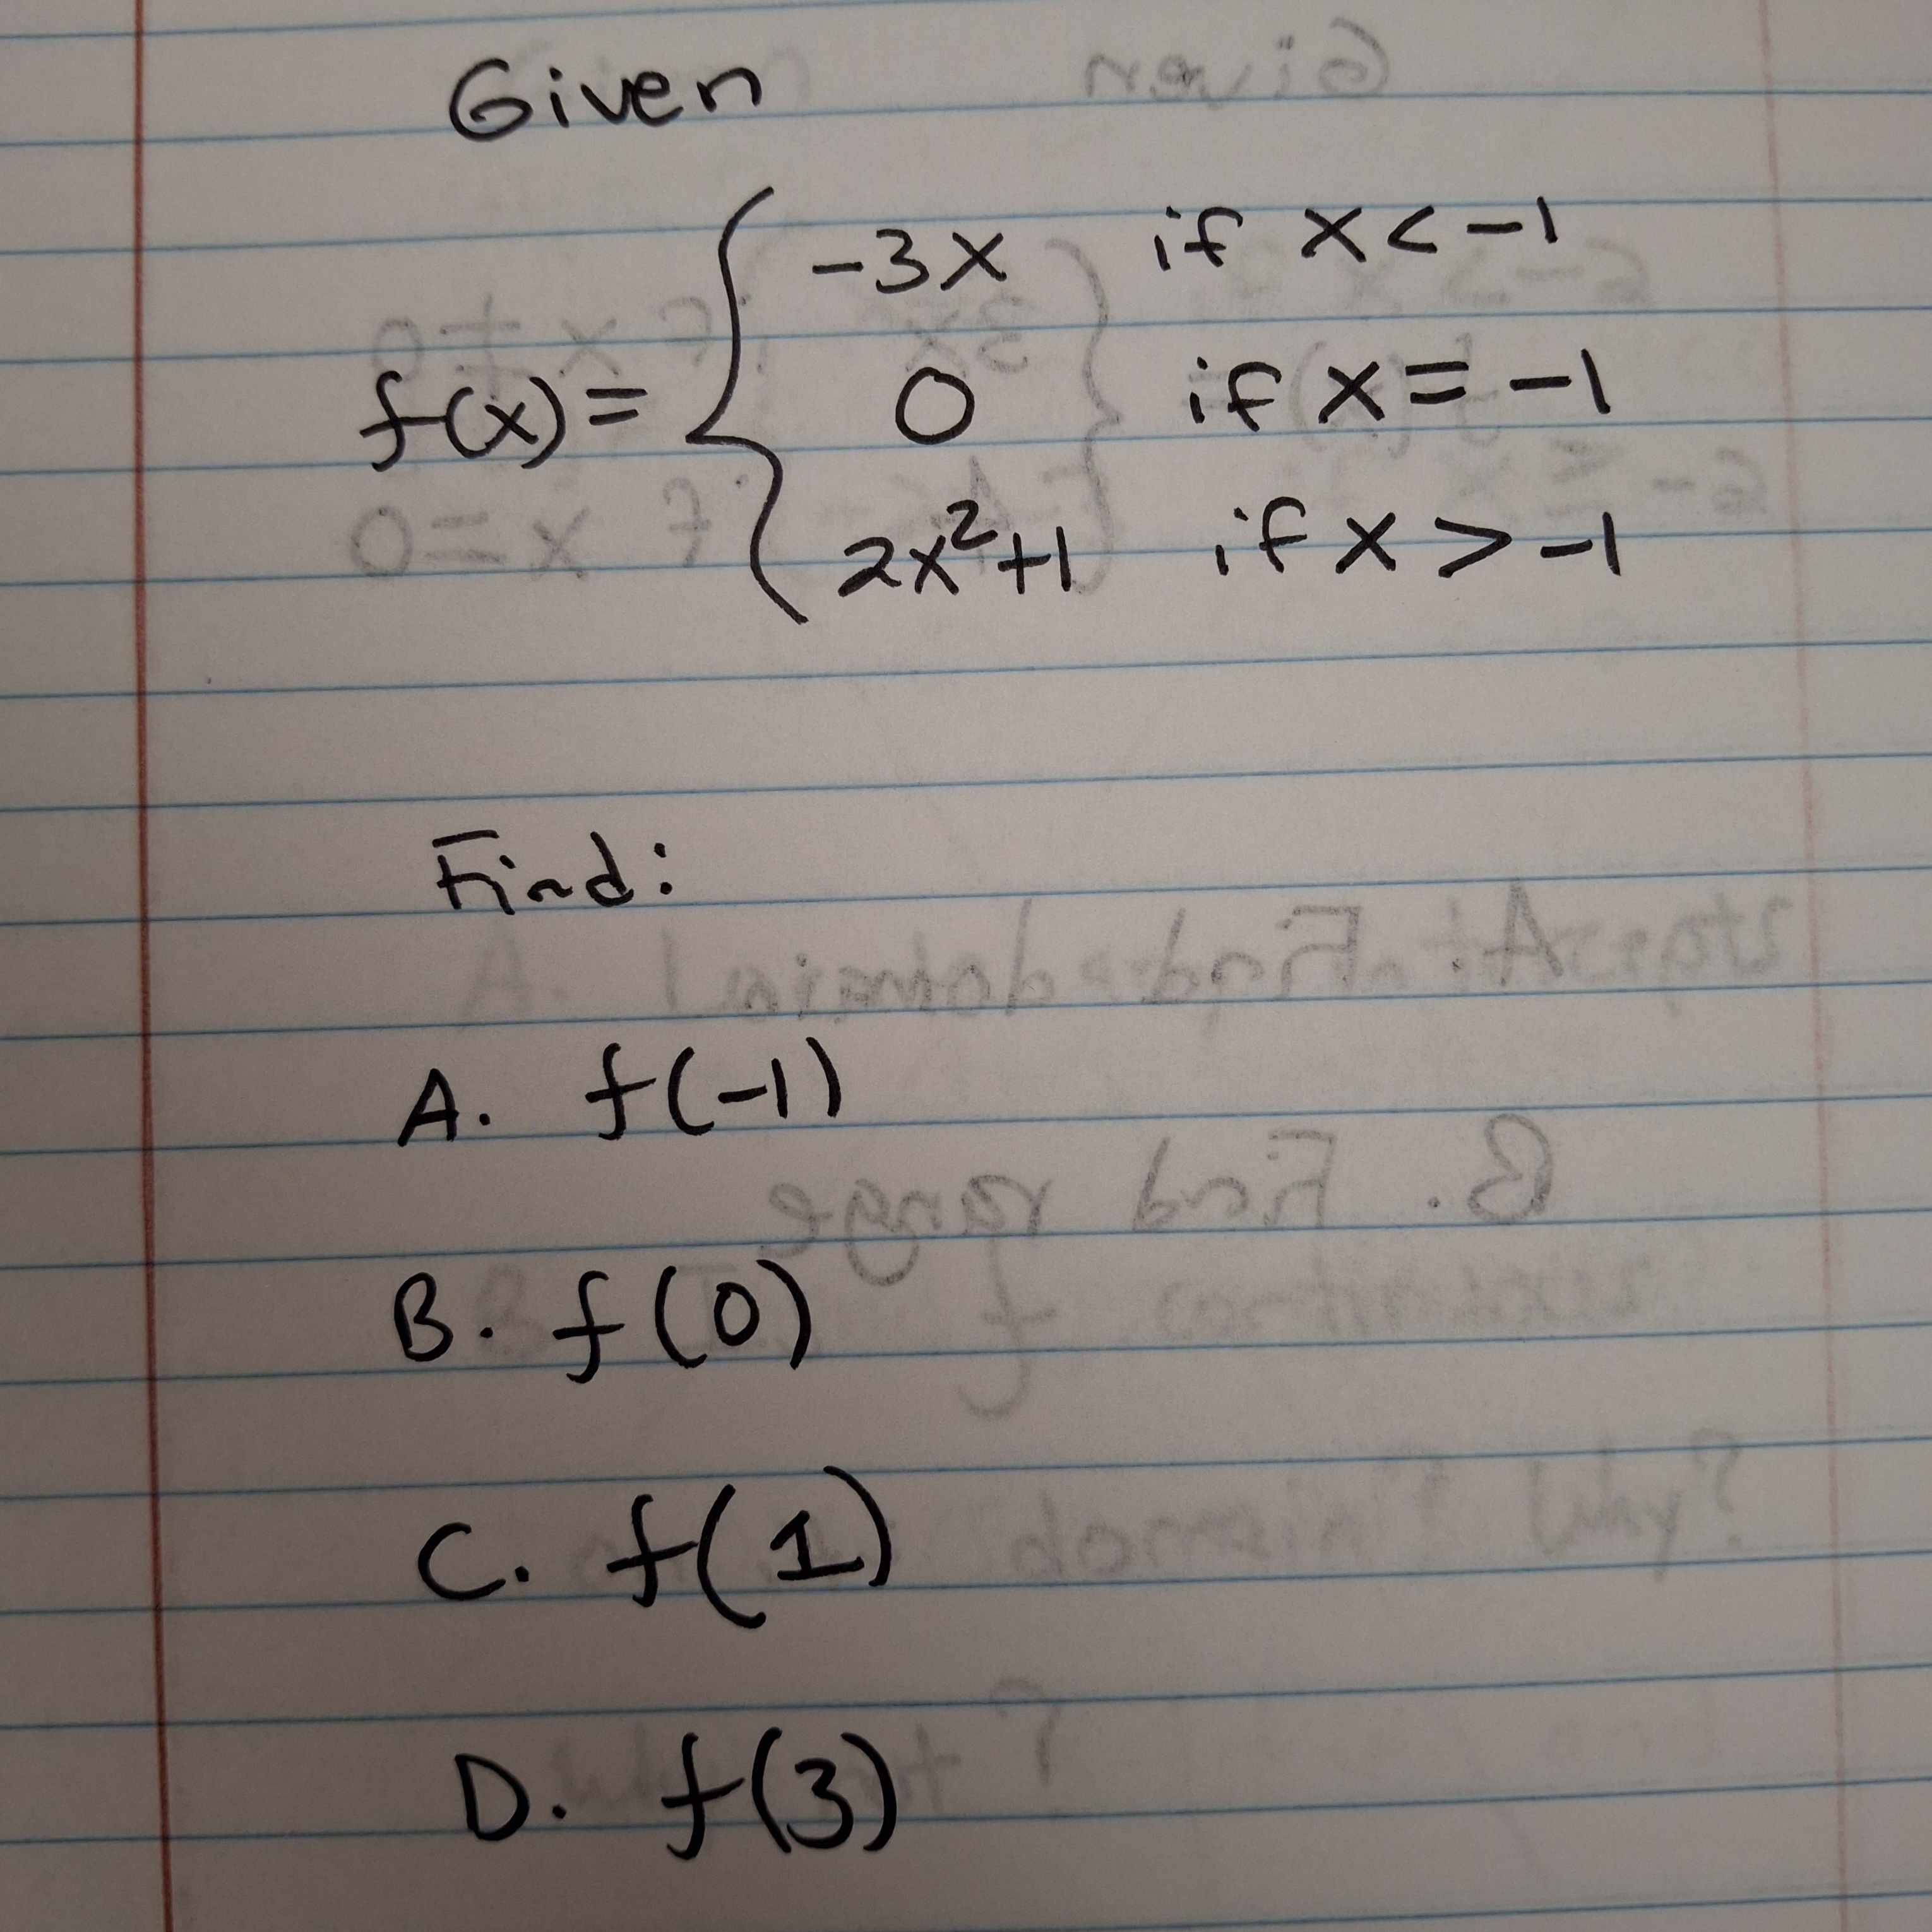 Given
-3x if x < -1
f(x) = { 0 if x = -1
2x²+1 if x > -1
Find:
A. f(-1)
B. f(0)
C. f(1)
D. f(3)